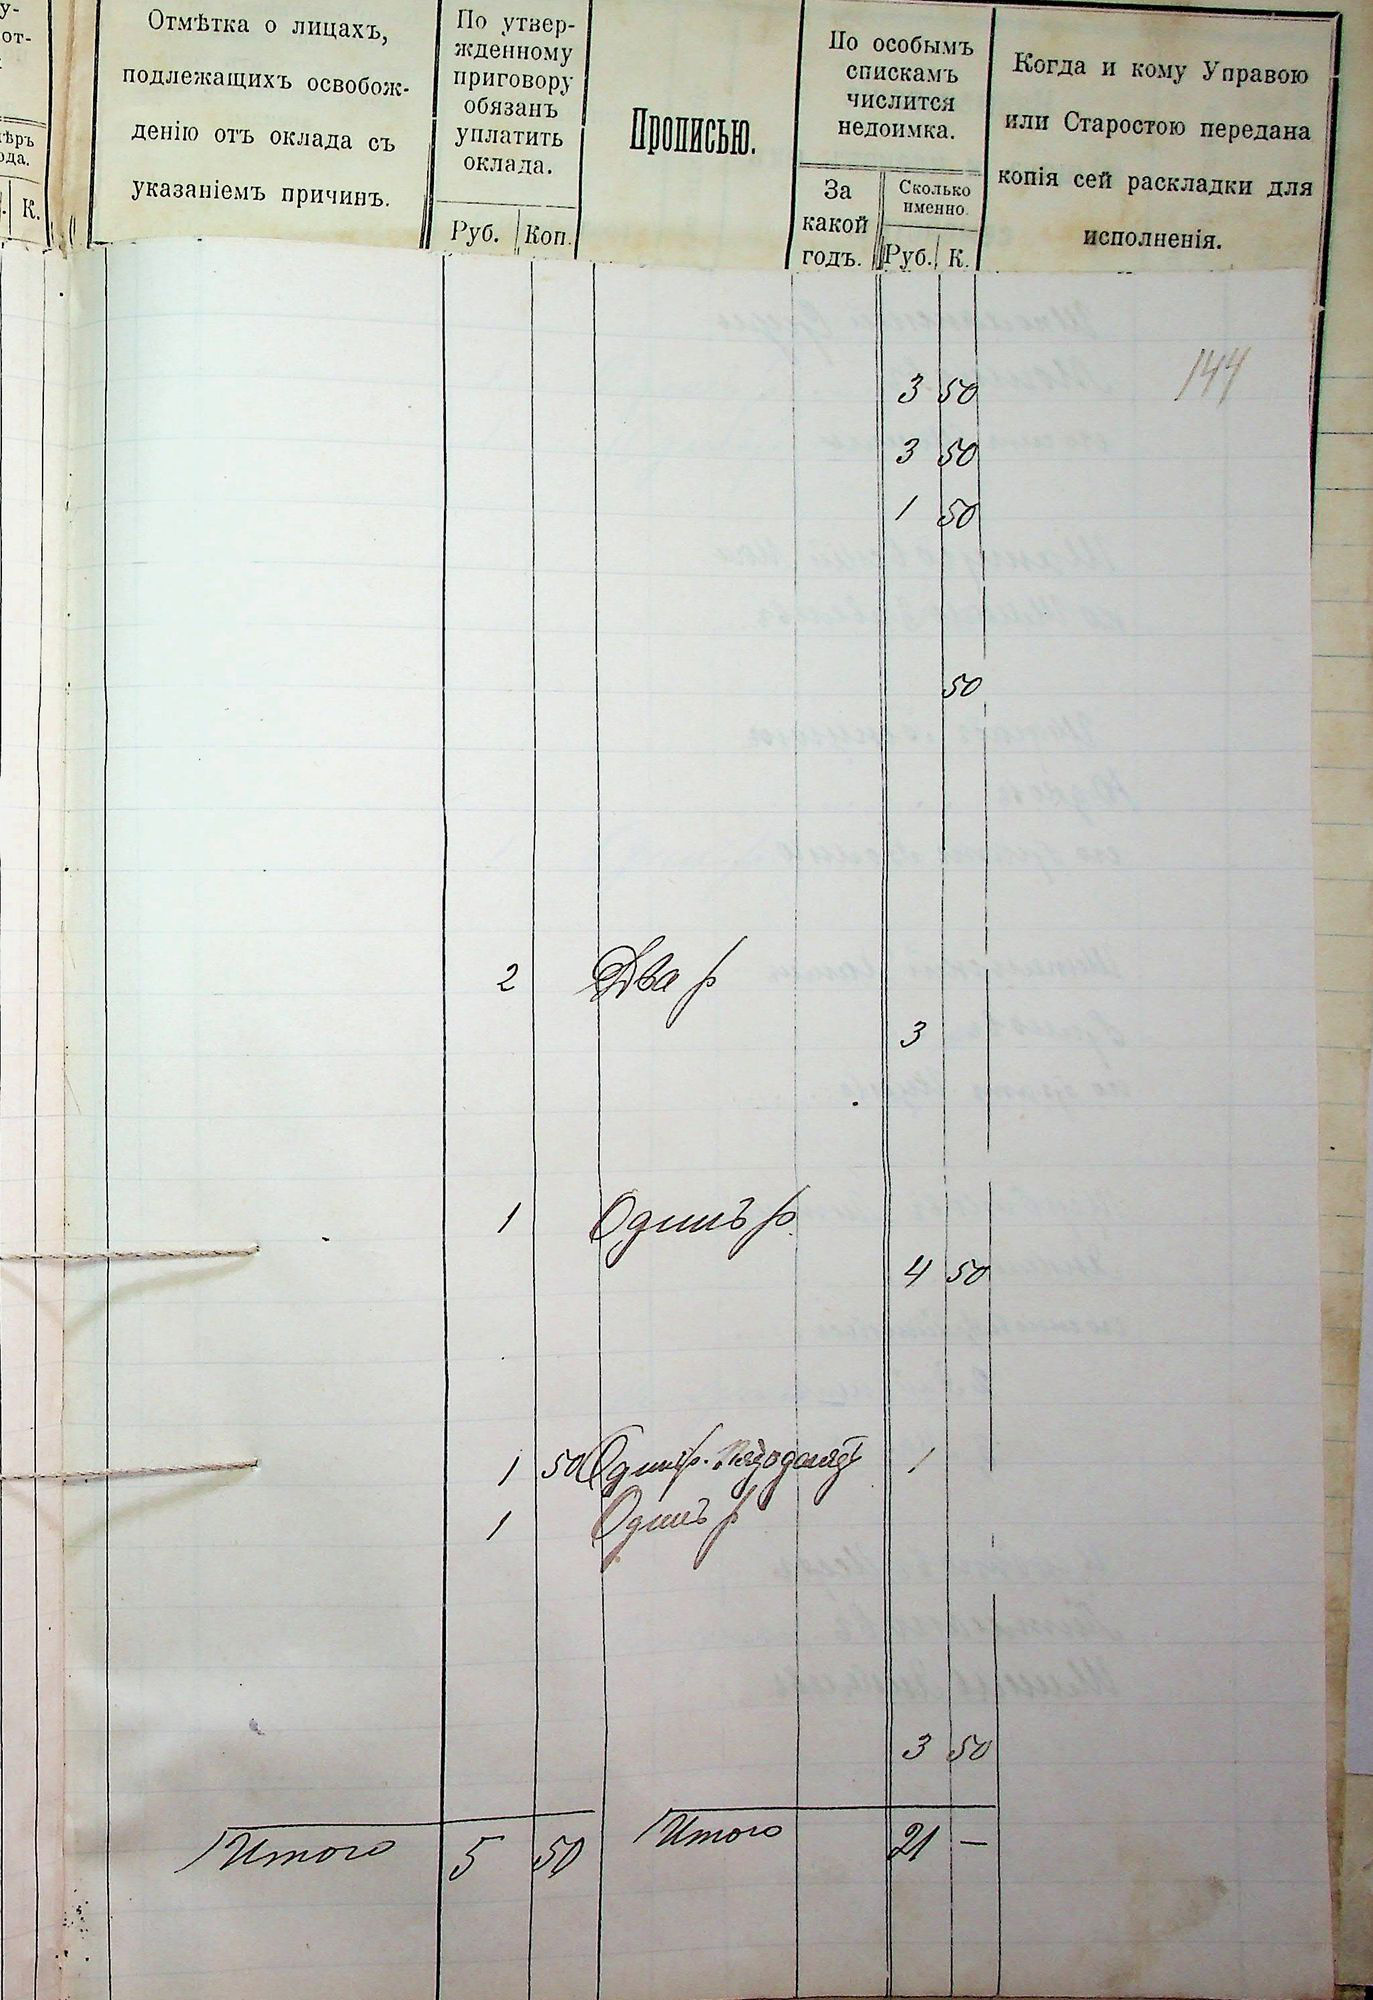 у-
от-
Отмѣтка о лицахъ,
подлежащихъ освобож-
денію отъ оклада съ
указаніемъ причинъ.
По утвер-
жденному
приговору
обязанъ
уплатить
оклада.
Руб. Коп.
Прописью.
По особымъ
спискамъ
числится
недоимка.
За
какой
годъ.
Сколько
именно.
Руб. К.
Когда и кому Управою
или Старостою передана
копія сей раскладки для
исполненія.
К.
144
3 50
3 50
1 50
50
2 Два р
3
1 Одинъ р.
4 50
1 50 Одинъ р. 1
1 Одинъ р
3 50
Итого 5 50 Итого 21 —